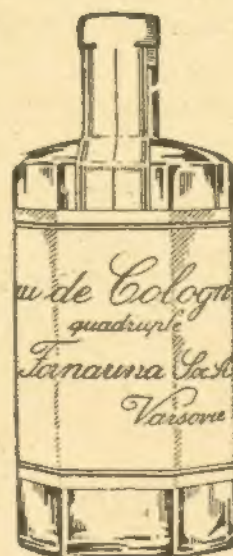 u de Cologn
quadruple
Fanauna S.A
Varsovie